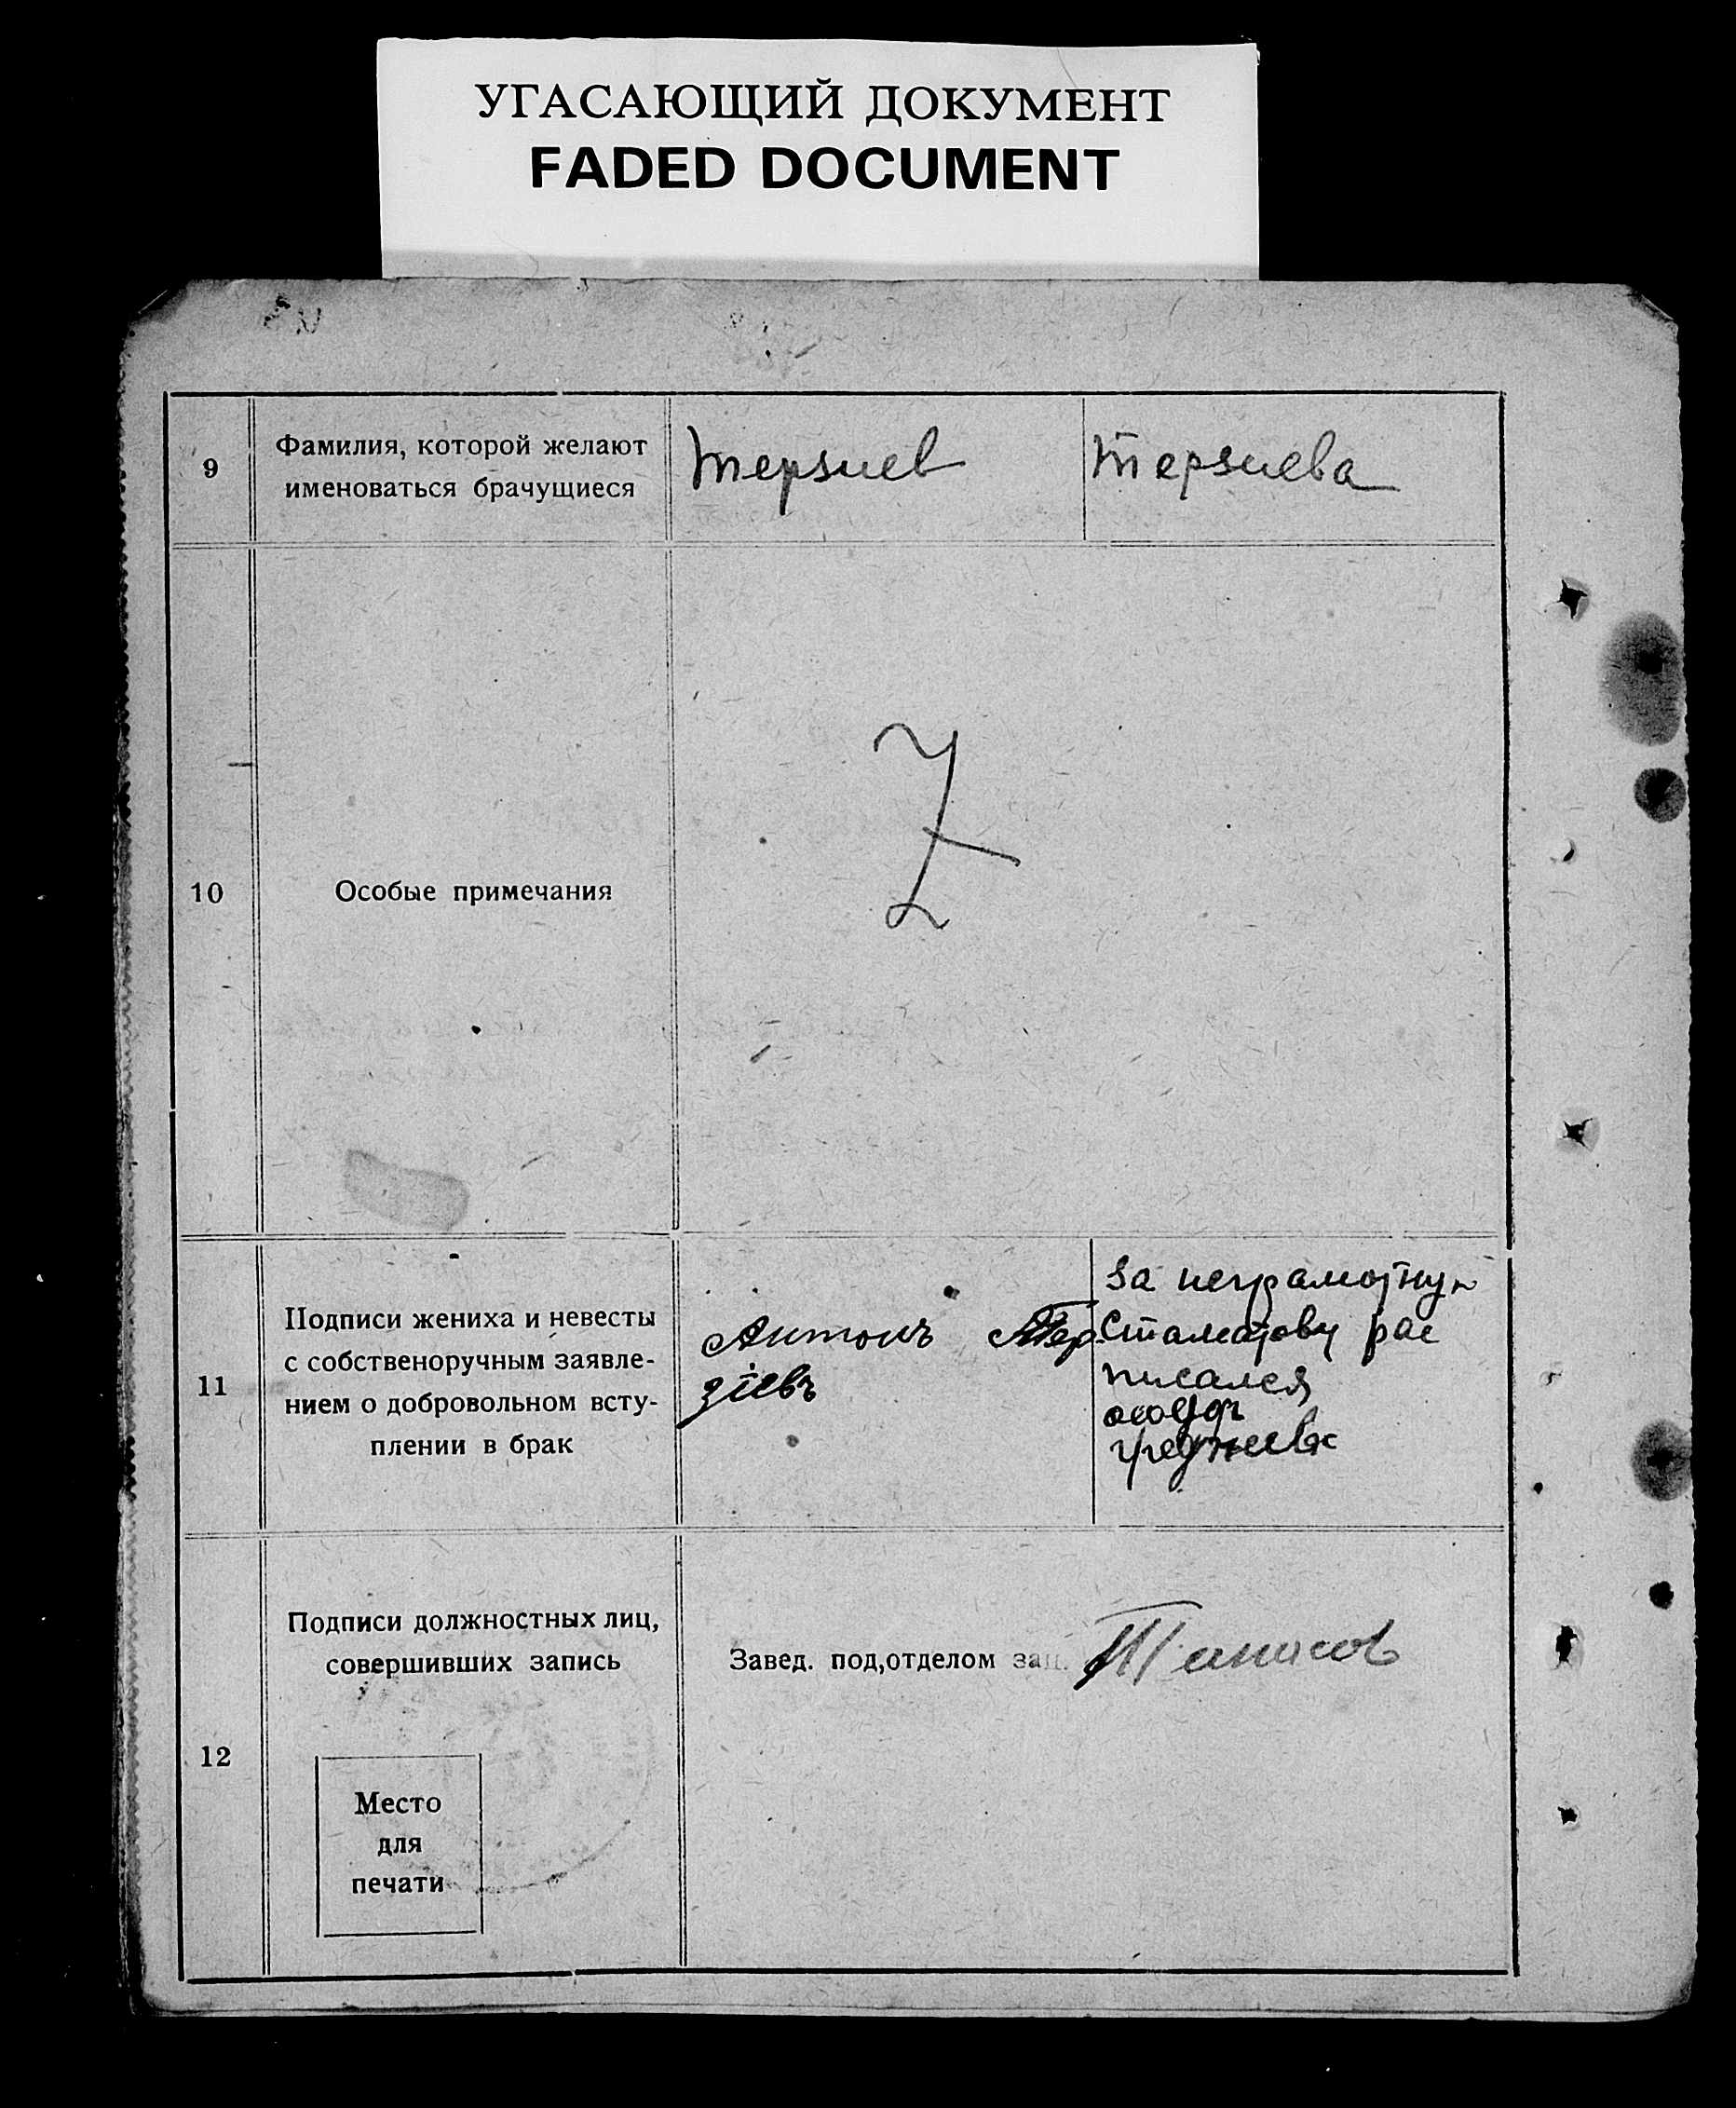 УГАСАЮЩИЙ ДОКУМЕНТ
FADED DOCUMENT
9
Фамилия, которой желают
именоваться брачущиеся
Терзиев
Терзиева
10
Особые примечания
Z
11
Подписи жениха и невесты
с собственоручным заявле-
нием о добровольном всту-
плении в брак
Антонъ Тер
зіевъ
За неграмотную
Стаматову рас
писался
12
Подписи должностных лиц,
совершивших запись
Место
для
печати
Завед. под,отделом зап. Танасов